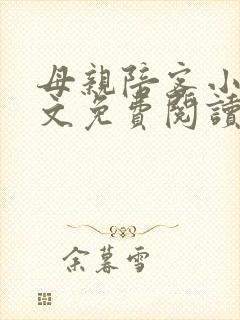 母親陪客小
文免費閱讀
余暮雪